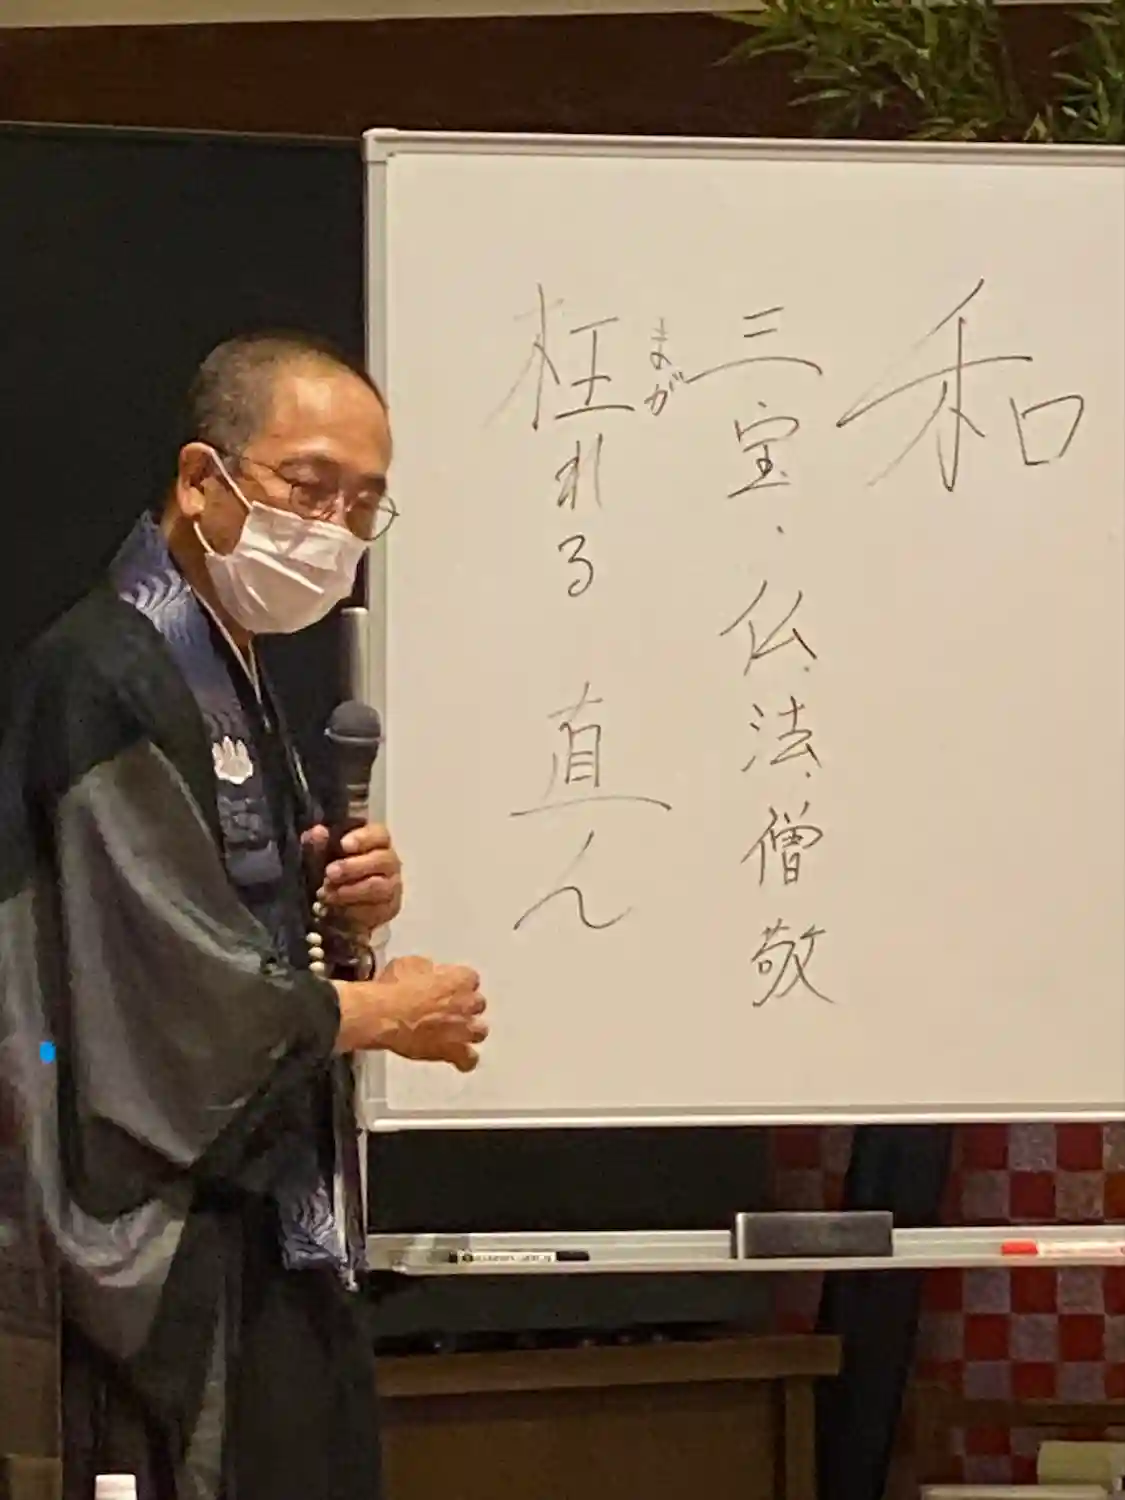 和
三宝・仏、法、僧敬
まが
枉れる 直ん